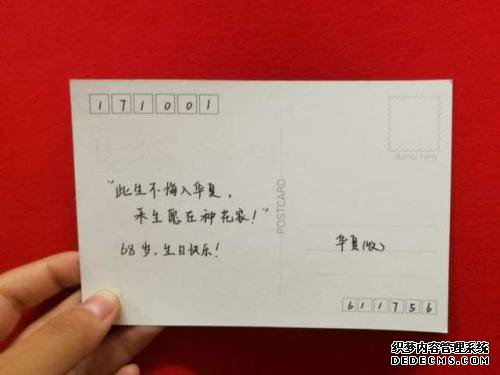 171001
Stamp here
“此生不悔入华夏，
来生愿在种花家！”
68岁，生日快乐！
POSTCARD
华夏（收）
611756
织梦内容管理系统
DEDECMS.COM